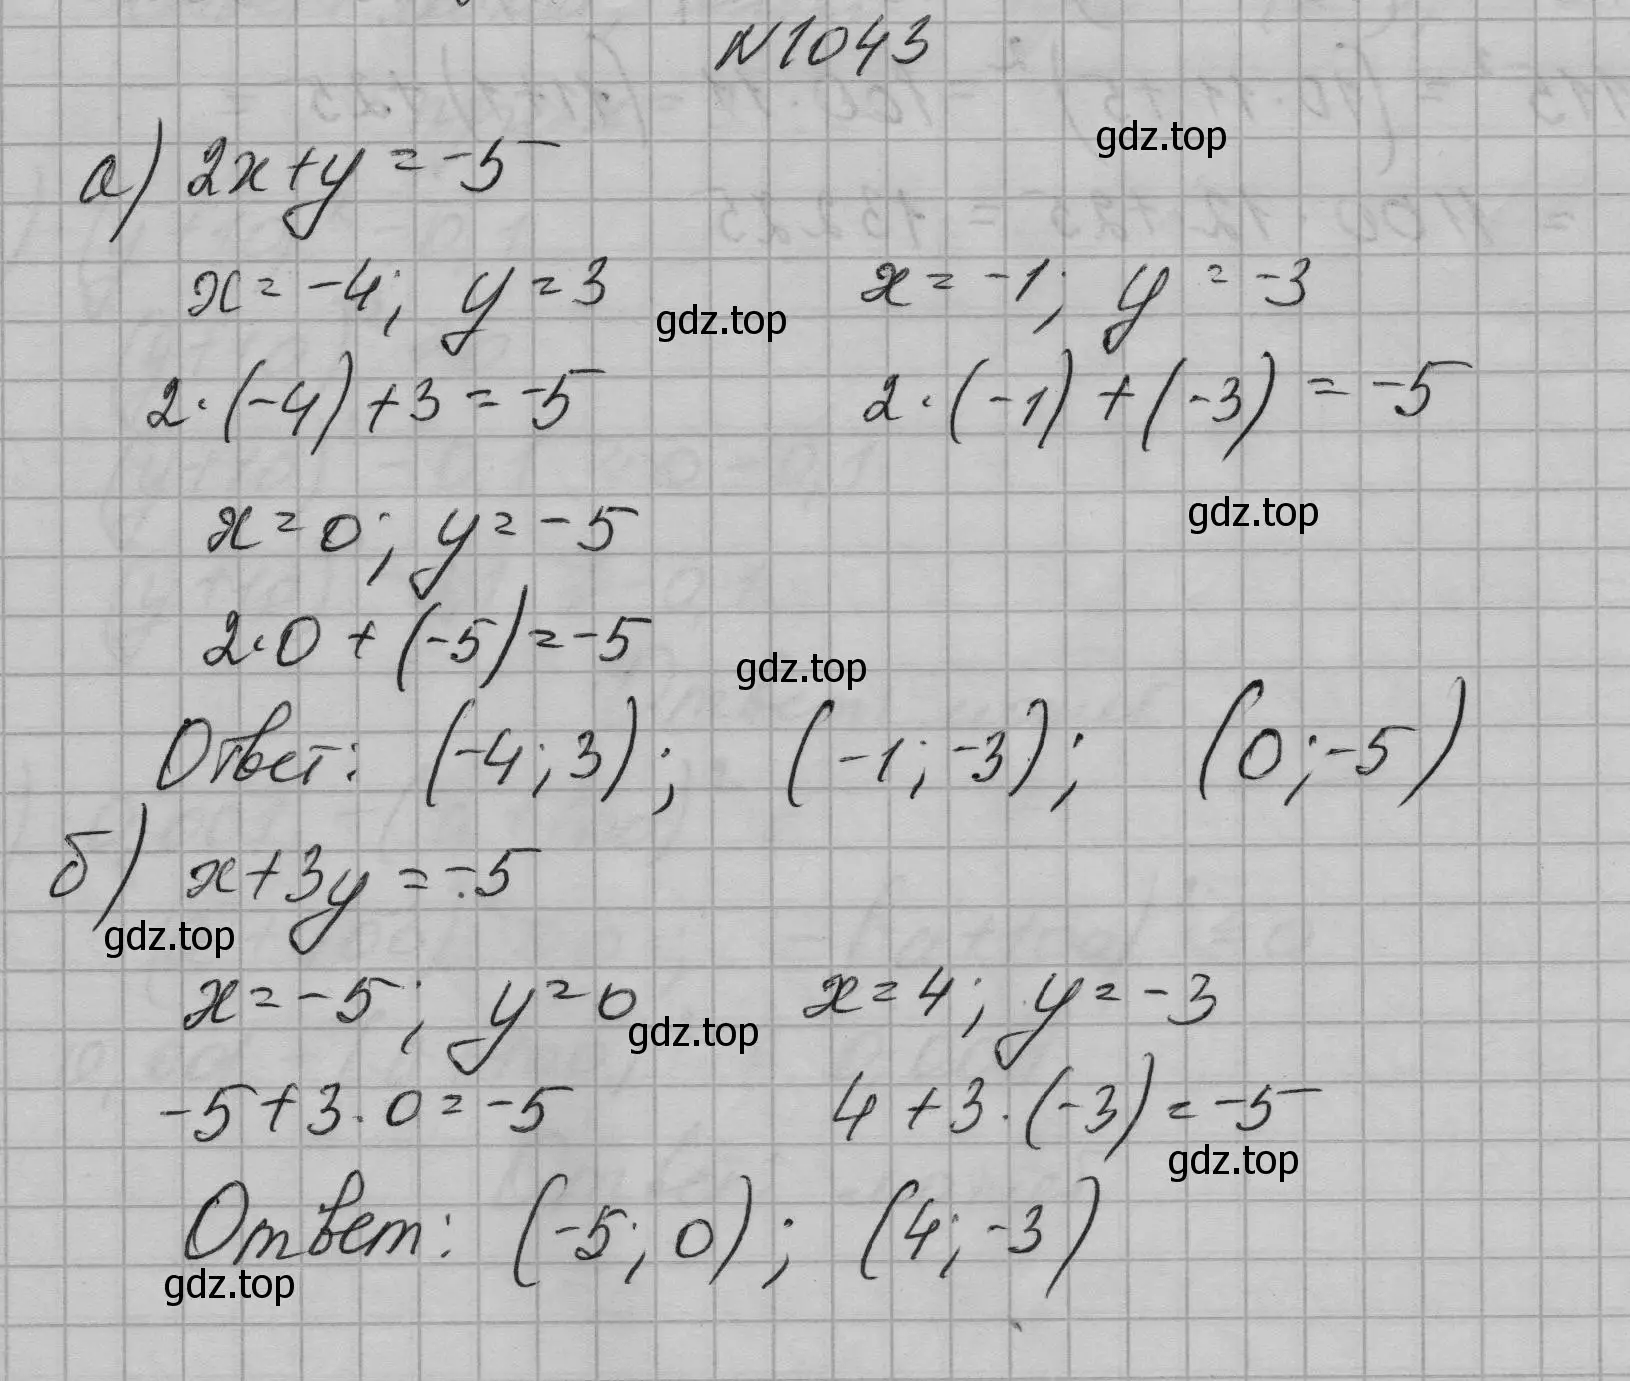 N1043
а) 2x+y=-5
gdz.top
x=-4; y=3
x=-1; y=-3
gdz.top
2·(-4)+3=-5
2·(-1)+(-3)=-5
x=0; y=-5
gdz.top
2·0+(-5)=-5
gdz.top
Ответ: (-4;3); (-1;-3); (0;-5)
б) x+3y=-5
gdz.top
x=-5; y=0
x=4; y=-3
gdz.top
-5+3·0=-5
4+3·(-3)=-5
gdz.top
Ответ: (-5;0); (4;-3)
gdz.top